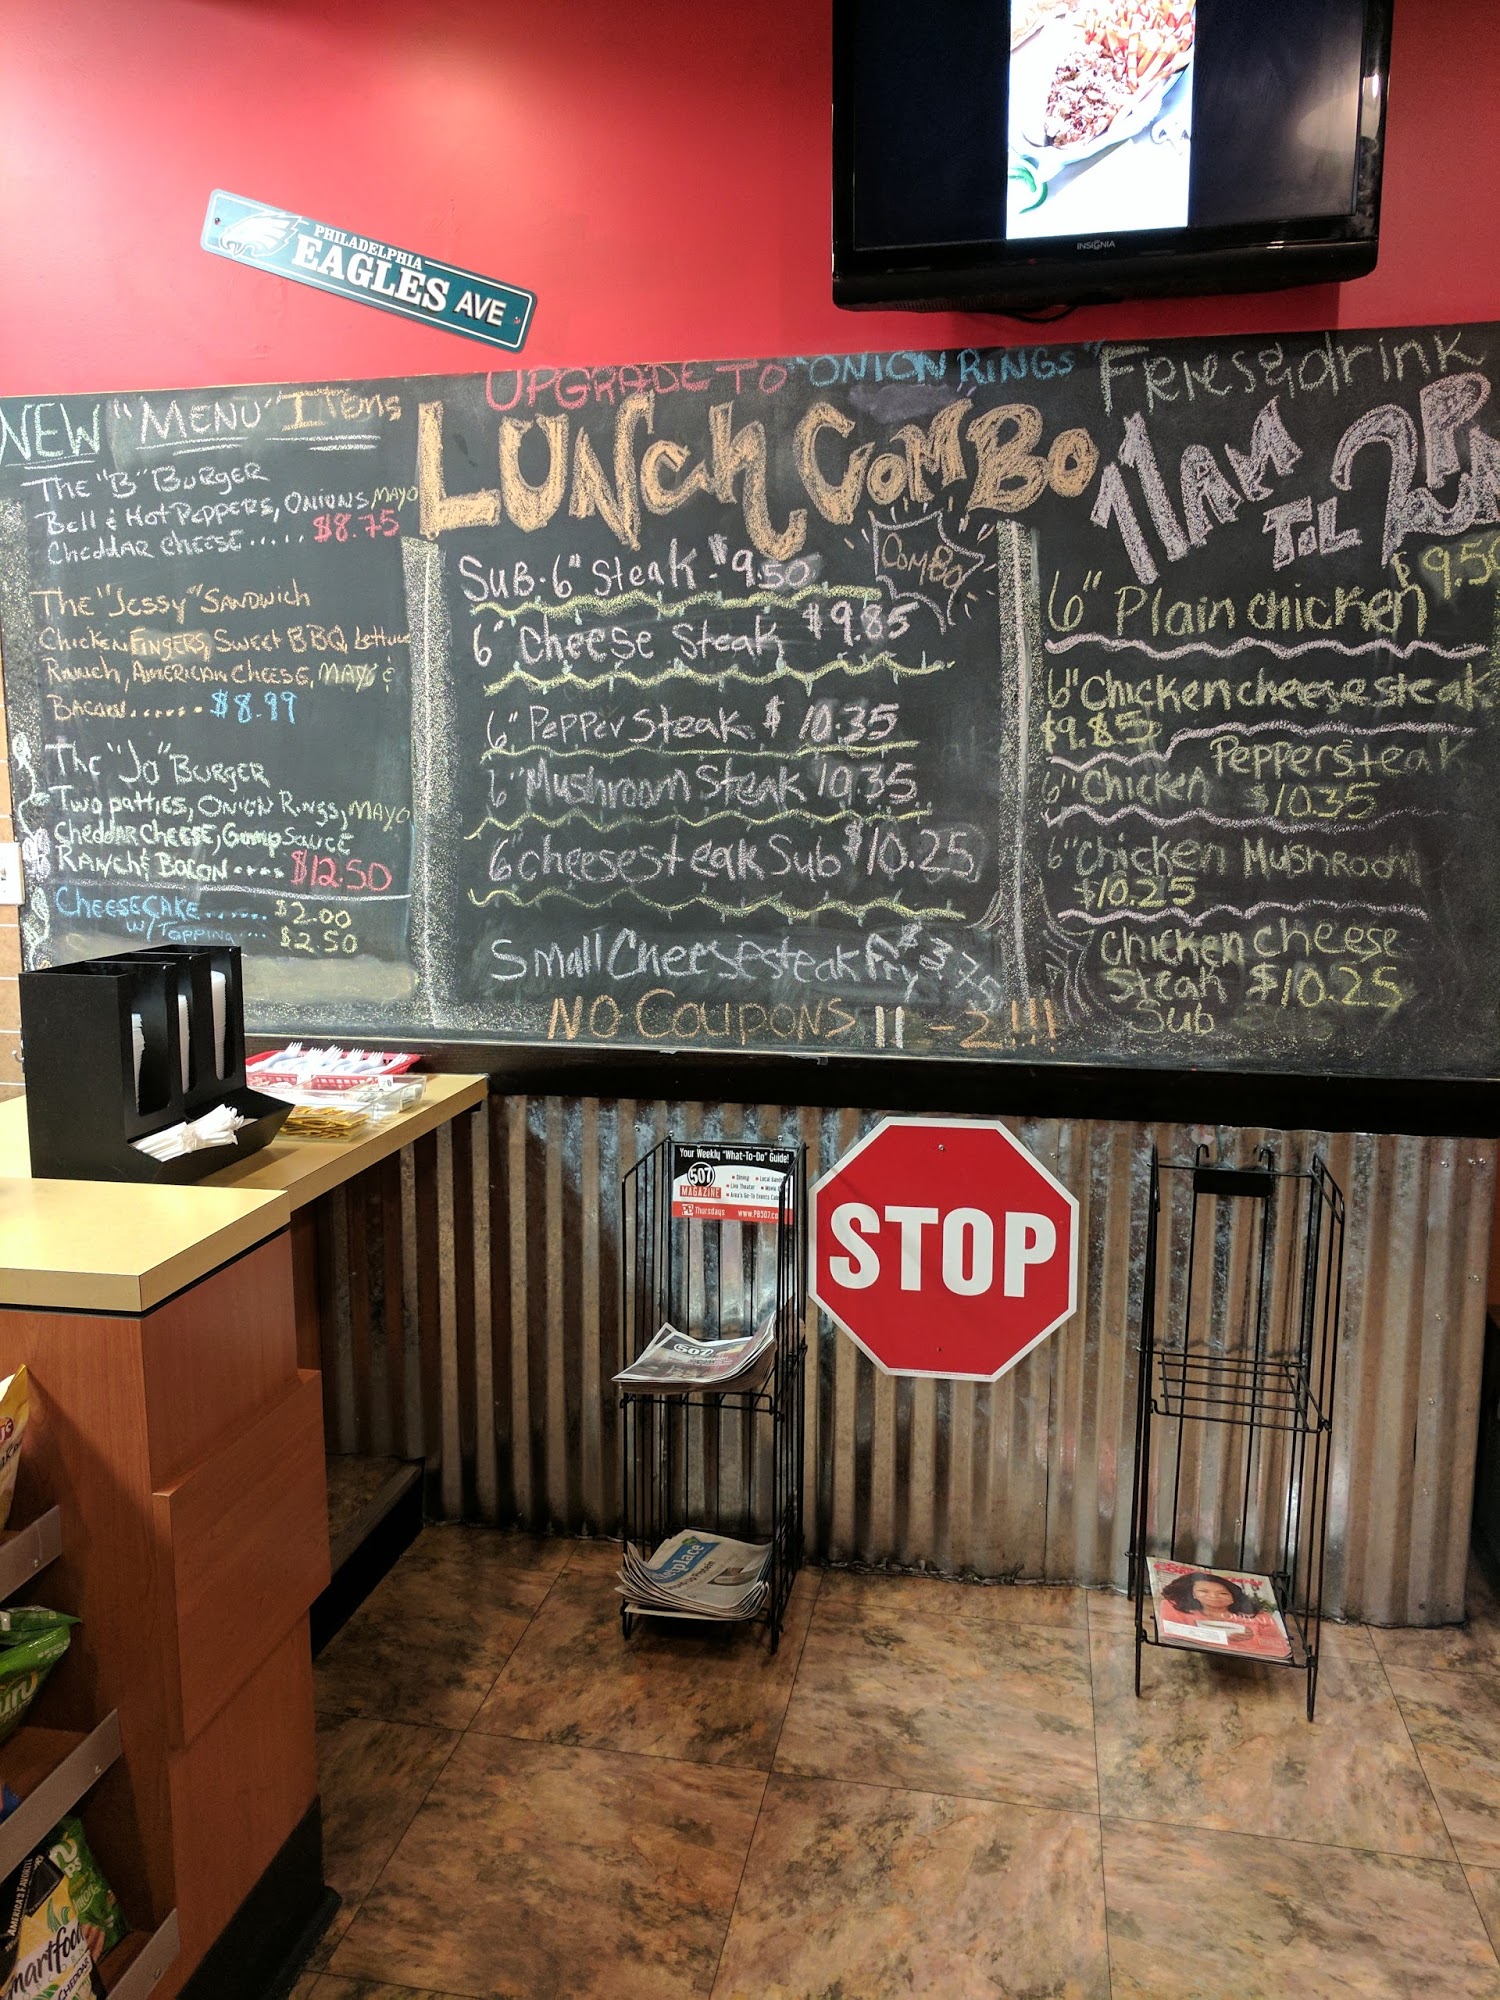 PHILADELPHIA
EAGLES AVE
INSIGNIA
NEW "MENU" ITEMS
THE "B" BURGER
Bell & HOT PEPPERS, ONIONS, MAYO
CHEDDAR CHEESE ..... $8.75
THE "JESSY" SANDWICH
CHICKEN FINGERS, SWEET BBQ, Lettuce
RANCH, AMERICAN CHEESE, MAYO &
BACON...... $8.99
THE "JO" BURGER
TWO patties, ONION RINGS, MAYO
CHEDDAR CHEESE, Gump SAUCE
RANCH & BACON .... $12.50
CHEESECAKE ....... $2.00
W/ TOPPING .... $2.50
UPGRADE TO "ONION RINGS"
LUNCH COMBO
COMBO
SUB. 6" Steak. $9.50
6" Cheese Steak $9.85
6" Pepper Steak $10.35
6" Mushroom Steak 10.35
6" cheesesteak Sub $10.25
Small Cheesesteak Fry
NO COUPONS 11-2!!!
Fries & drink
11AM TIL 2PM
6" Plain chicken $9.50
6" Chicken cheesesteak
$9.85
6" Chicken Peppersteak
$10.35
6" Chicken Mushroom
$10.25
Chicken Cheese
Steak $10.25
Sub
Your Weekly "What-To-Do" Guide!
507
MAGAZINE
• Dining
• Live Theater
Thursdays
507
STOP
AMERICA'S FAVORITE